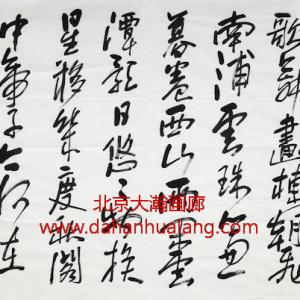 歌舞畫棟朝飛
南浦雲珠簾
暮卷西山雨
潭影日悠々物換
星移幾度秋閣
中帝子今何在
北京大瀚画廊
www.dahanhualang.com